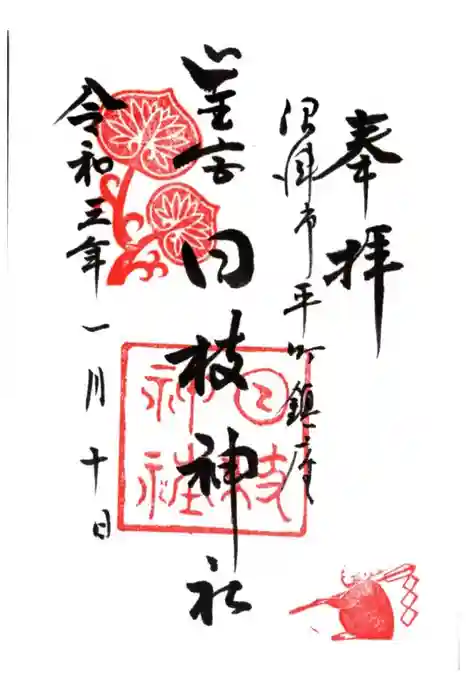 奉拝
沼津市平町鎮座
日枝神社
令和三年一月十日
日枝
神社